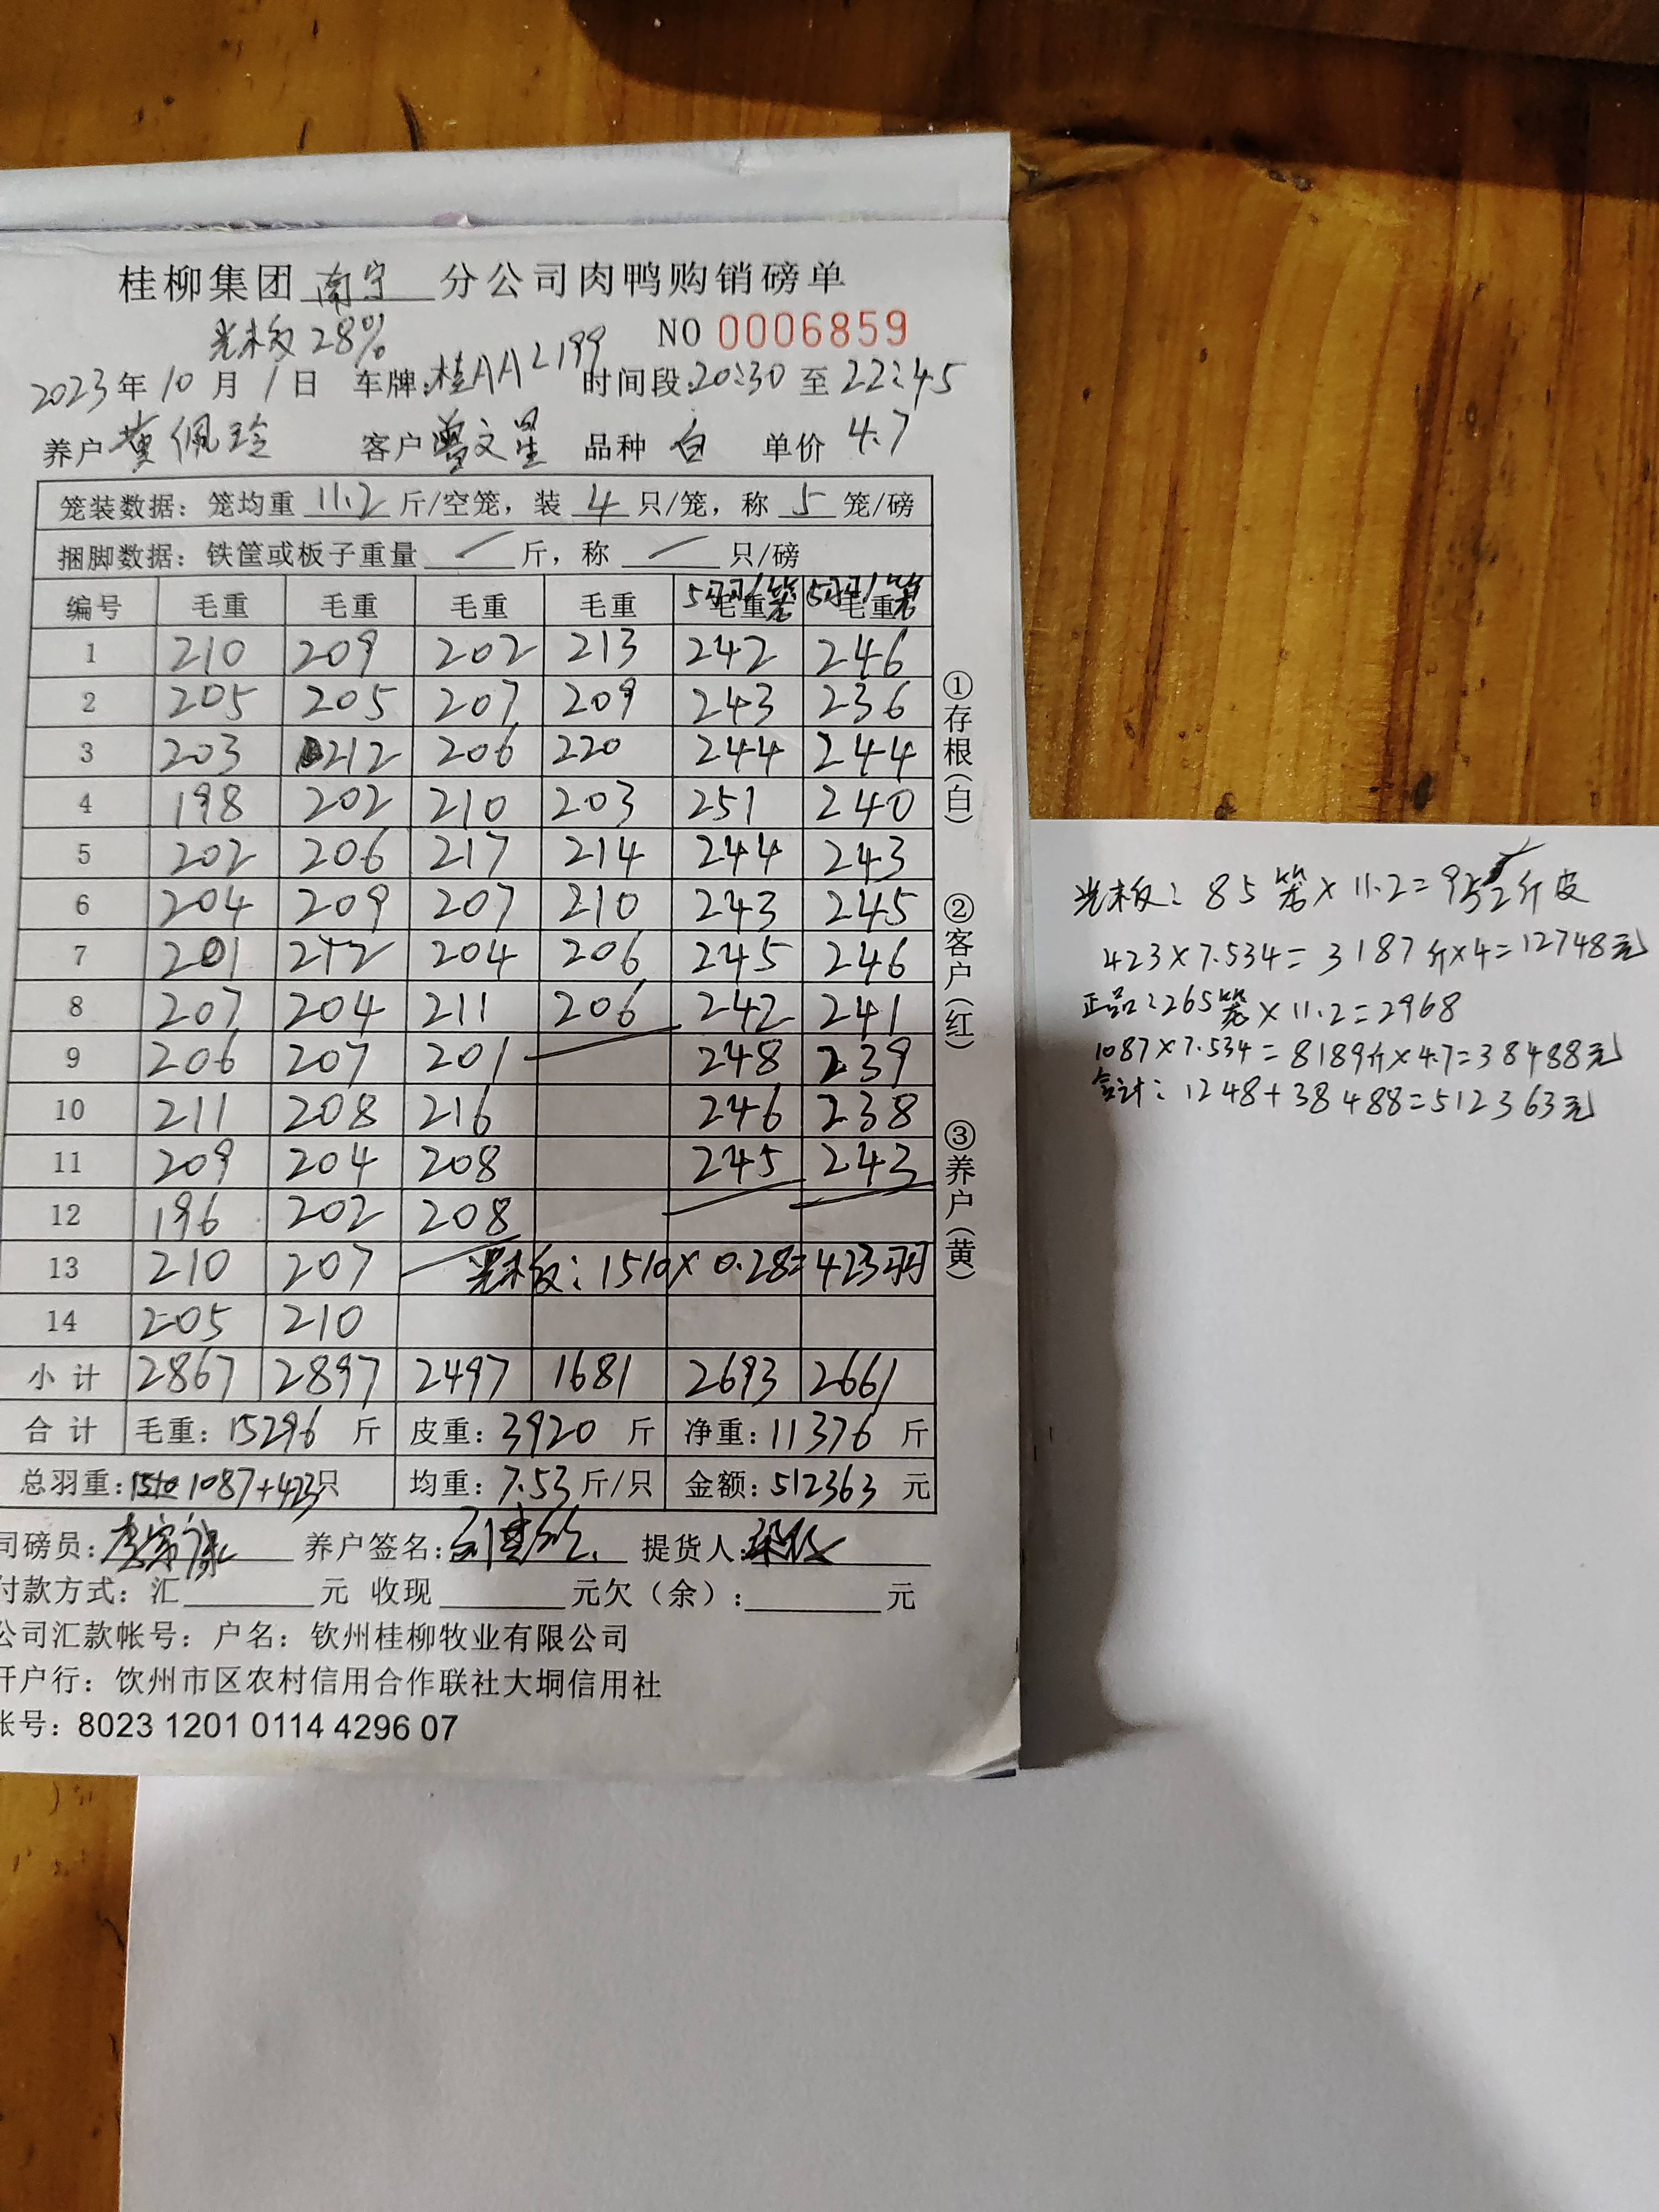 桂柳集团 南宁 分公司肉鸭购销磅单
光板28%
NO 0006859
2023年10月1日 车牌:桂AA2199 时间段:20:30 至 22:45
养户 黄佩玲 客户 曾文星 品种 白 单价 4.7
笼装数据: 笼均重 11.2 斤/空笼, 装 4 只/笼, 称 5 笼/磅
捆脚数据: 铁筐或板子重量 / 斤, 称 / 只/磅
5羽/笼 5羽/笼
编号 毛重 毛重 毛重 毛重 毛重 毛重
1 210 209 202 213 242 246
2 205 205 207 209 243 236
3 203 212 206 220 244 244
4 198 202 210 203 251 240
5 202 206 217 214 244 243
6 204 209 207 210 243 245
7 201 212 204 206 245 246
8 207 204 211 206 242 241
9 206 207 201 248 239
10 211 208 216 246 238
11 209 204 208 245 243
12 196 202 208
13 210 207 光板: 1510×0.28=423羽
14 205 210
小计 2867 2897 2497 1681 2693 2661
合计 毛重: 15296 斤 皮重: 3920 斤 净重: 11376 斤
总羽重: 1510 1087+423只 均重: 7.53斤/只 金额: 512363 元
司磅员: 养户签名: 提货人:
付款方式: 汇 元 收现 元欠(余): 元
公司汇款帐号: 户名: 钦州桂柳牧业有限公司
开户行: 饮州市区农村信用合作联社大垌信用社
帐号: 8023 1201 0114 4296 07
①存根(白) ②客户(红) ③养户(黄)
光板: 85笼×11.2=952斤皮
423×7.534=3187斤×4=12748元
正品: 265笼×11.2=2968
1087×7.534=8189斤×4.7=38488元
合计: 1248+38488=512363元